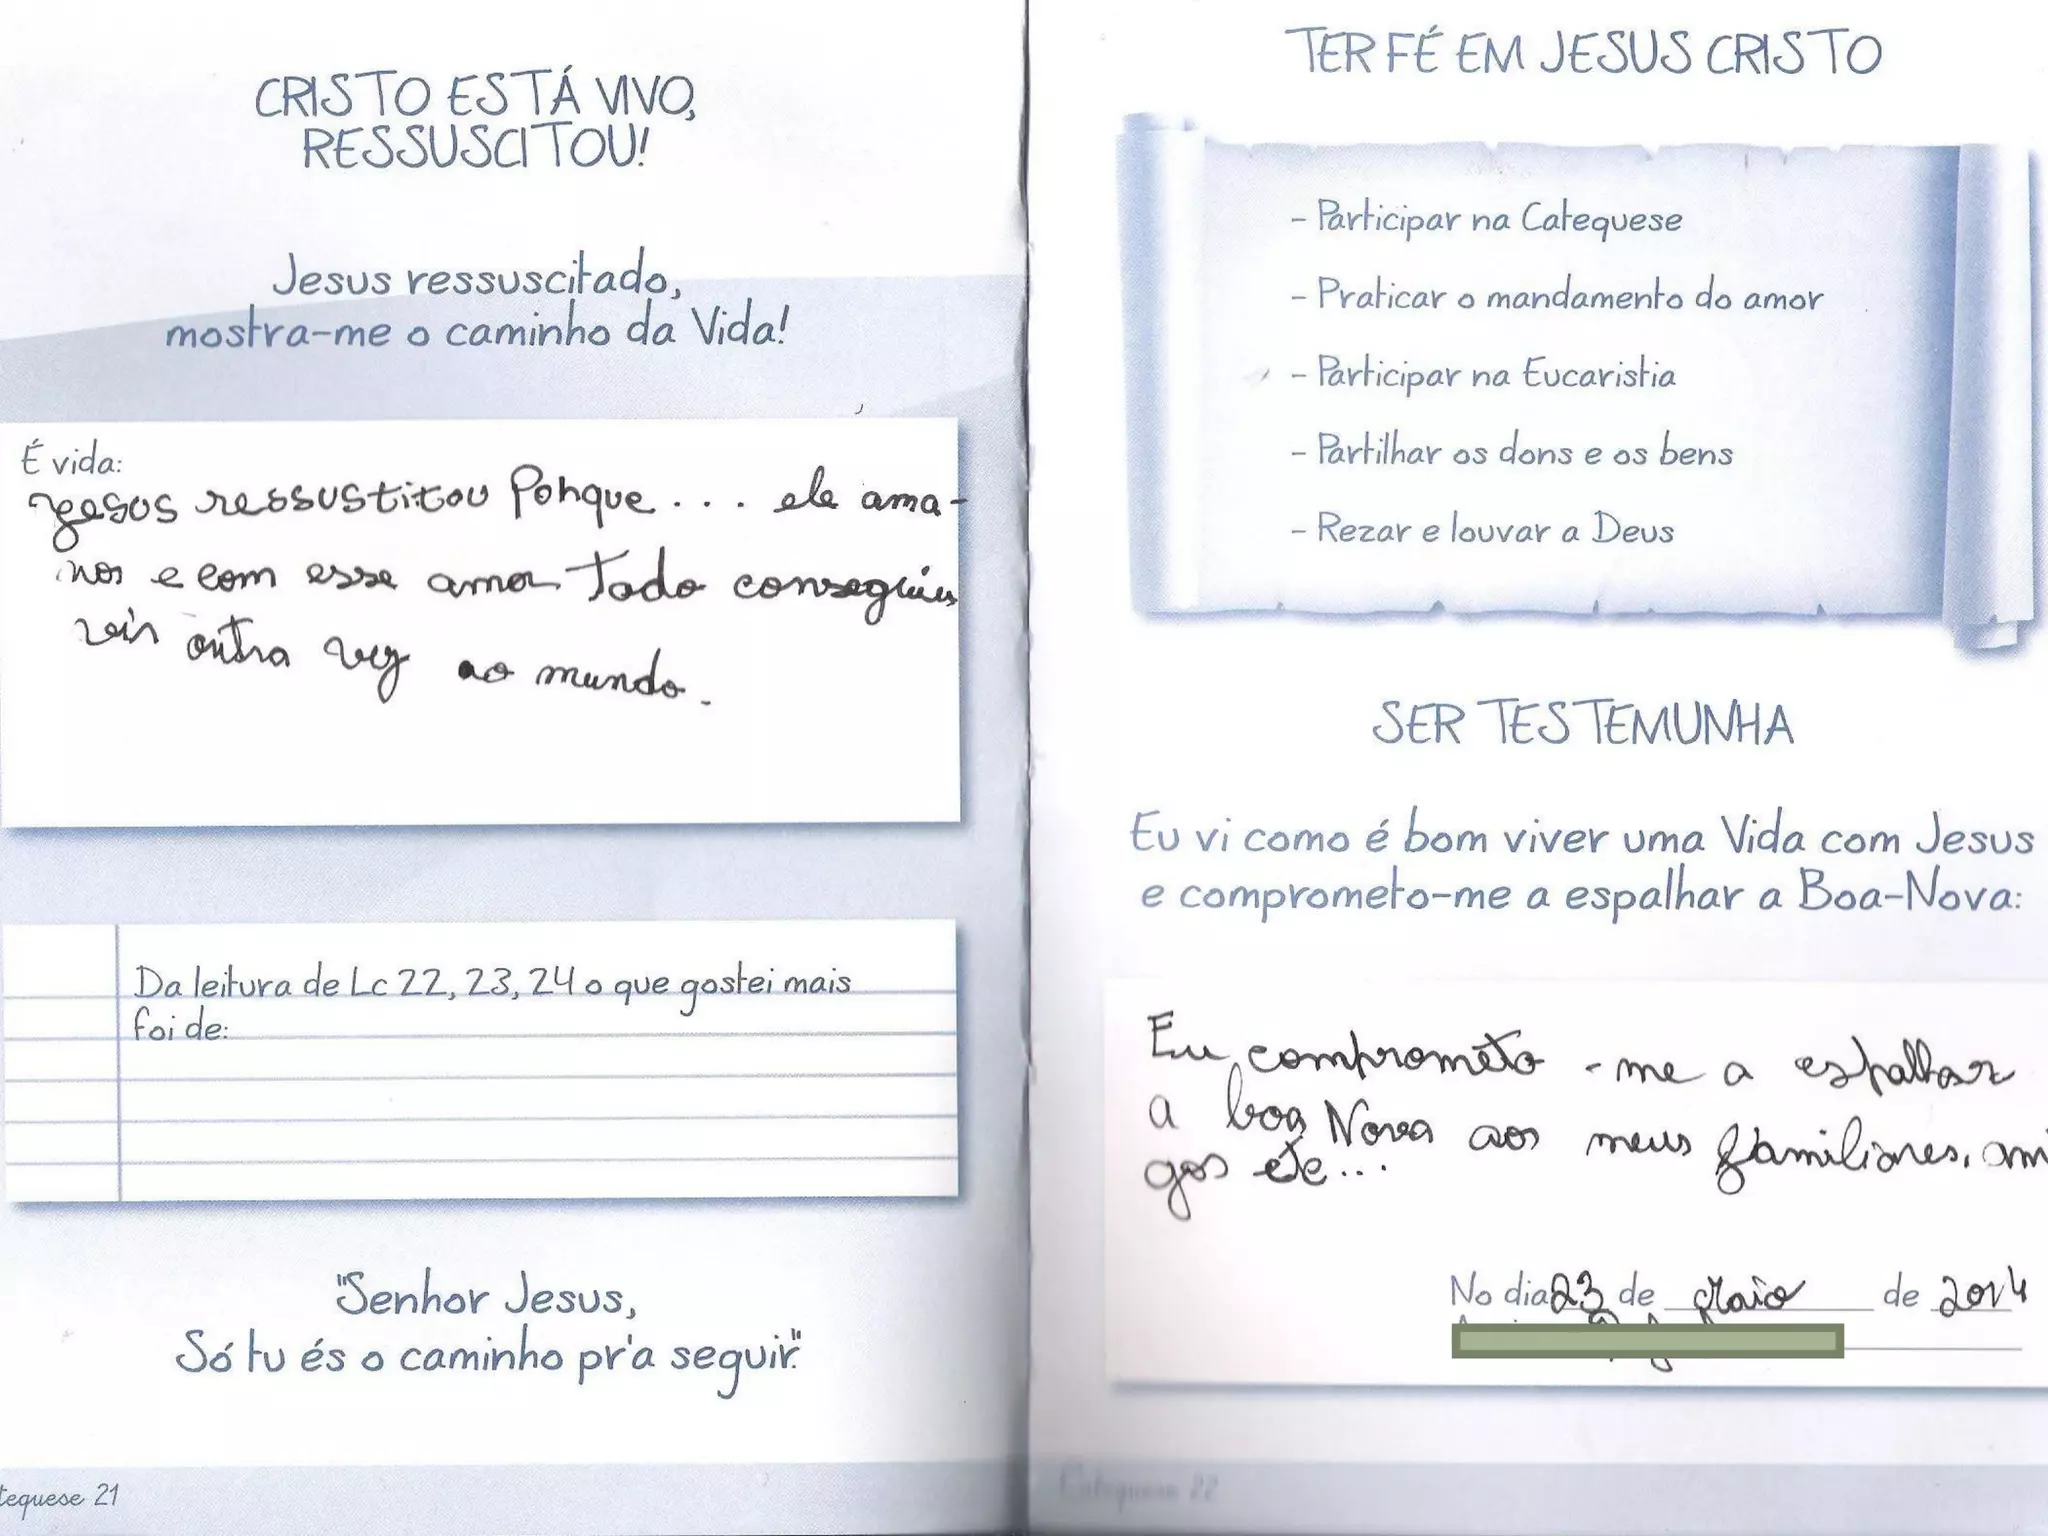 CRISTO ESTÁ VIVO,
RESSUSCITOU!
Jesus ressuscitado,
mostra-me o caminho da Vida!
É vida:
Jesus ressustitou Porque... ele ama-
nos e com esse amor Todo conseguiu
vir outra vez ao mundo.
Da leitura de Lc 22, 23, 24 o que gostei mais
foi de:
"Senhor Jesus,
Só tu és o caminho pr'a seguir."
tequese 21
TER FÉ EM JESUS CRISTO
- Participar na Catequese
- Praticar o mandamento do amor
- Participar na Eucaristia
- Partilhar os dons e os bens
- Rezar e louvar a Deus
SER TESTEMUNHA
Eu vi como é bom viver uma Vida com Jesus
e comprometo-me a espalhar a Boa-Nova:
Eu comprometo-me a espalhar
a boa Nova aos meus familiares, ami
gos etc...
No dia 23 de Maio de 2014
Catequese 22